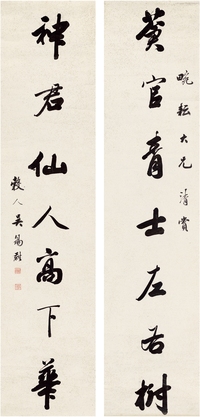 畹耘大兄清赏
黄官青士左右树
神君仙人高下华
穀人吴锡麒